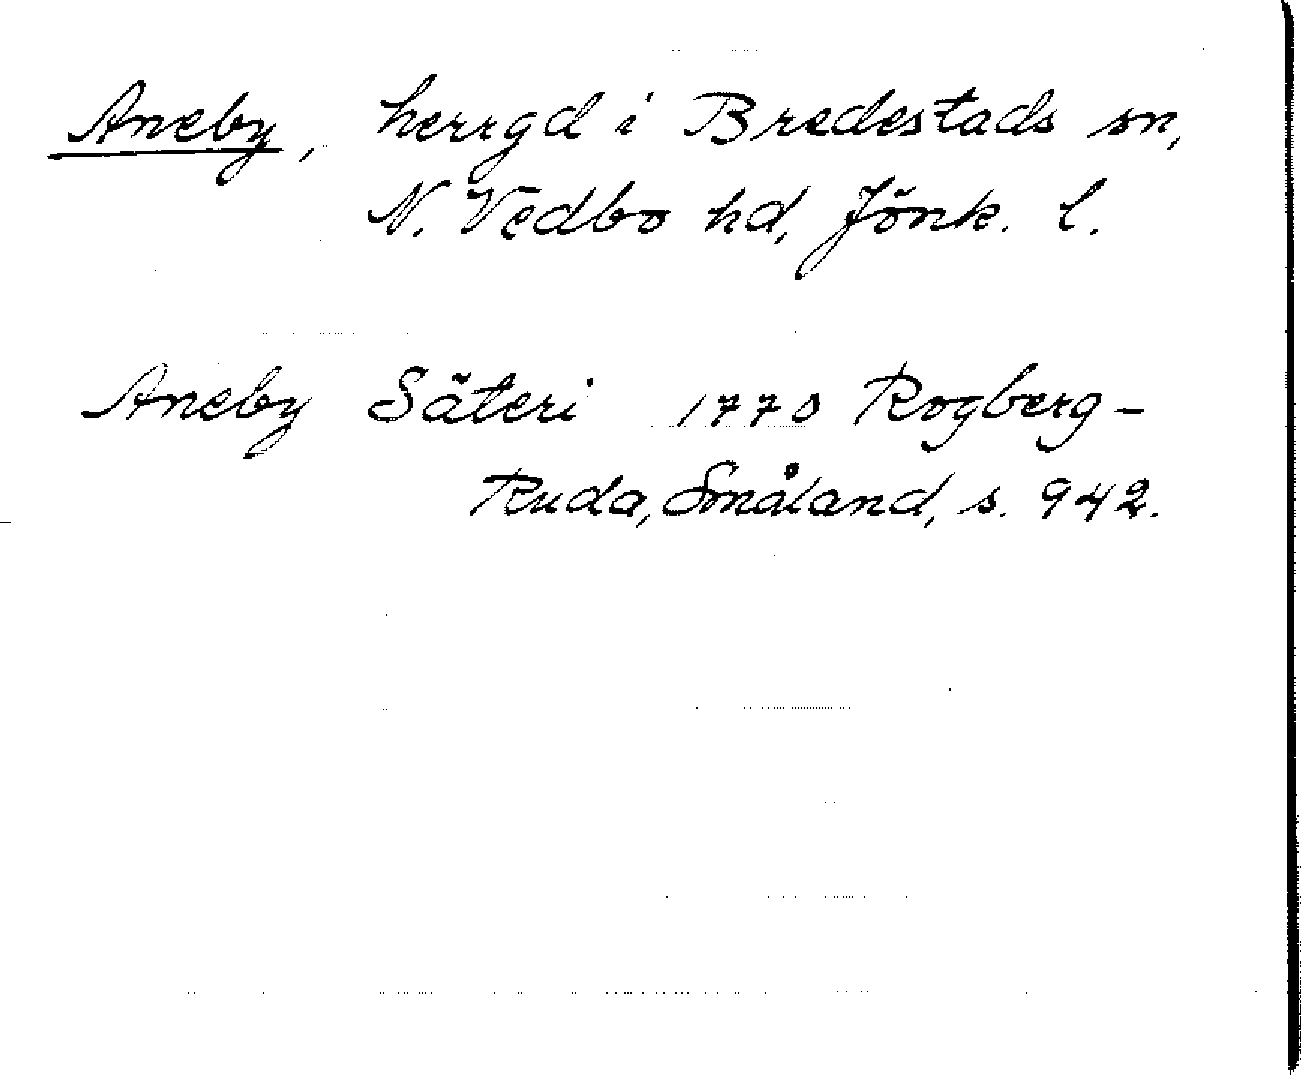 Aneby, herrgd i Bredestads sn,
N. Vedbo hd, Jönk. l.
Aneby Säteri 1770 Rogberg-
Ruda, Småland, s. 942.